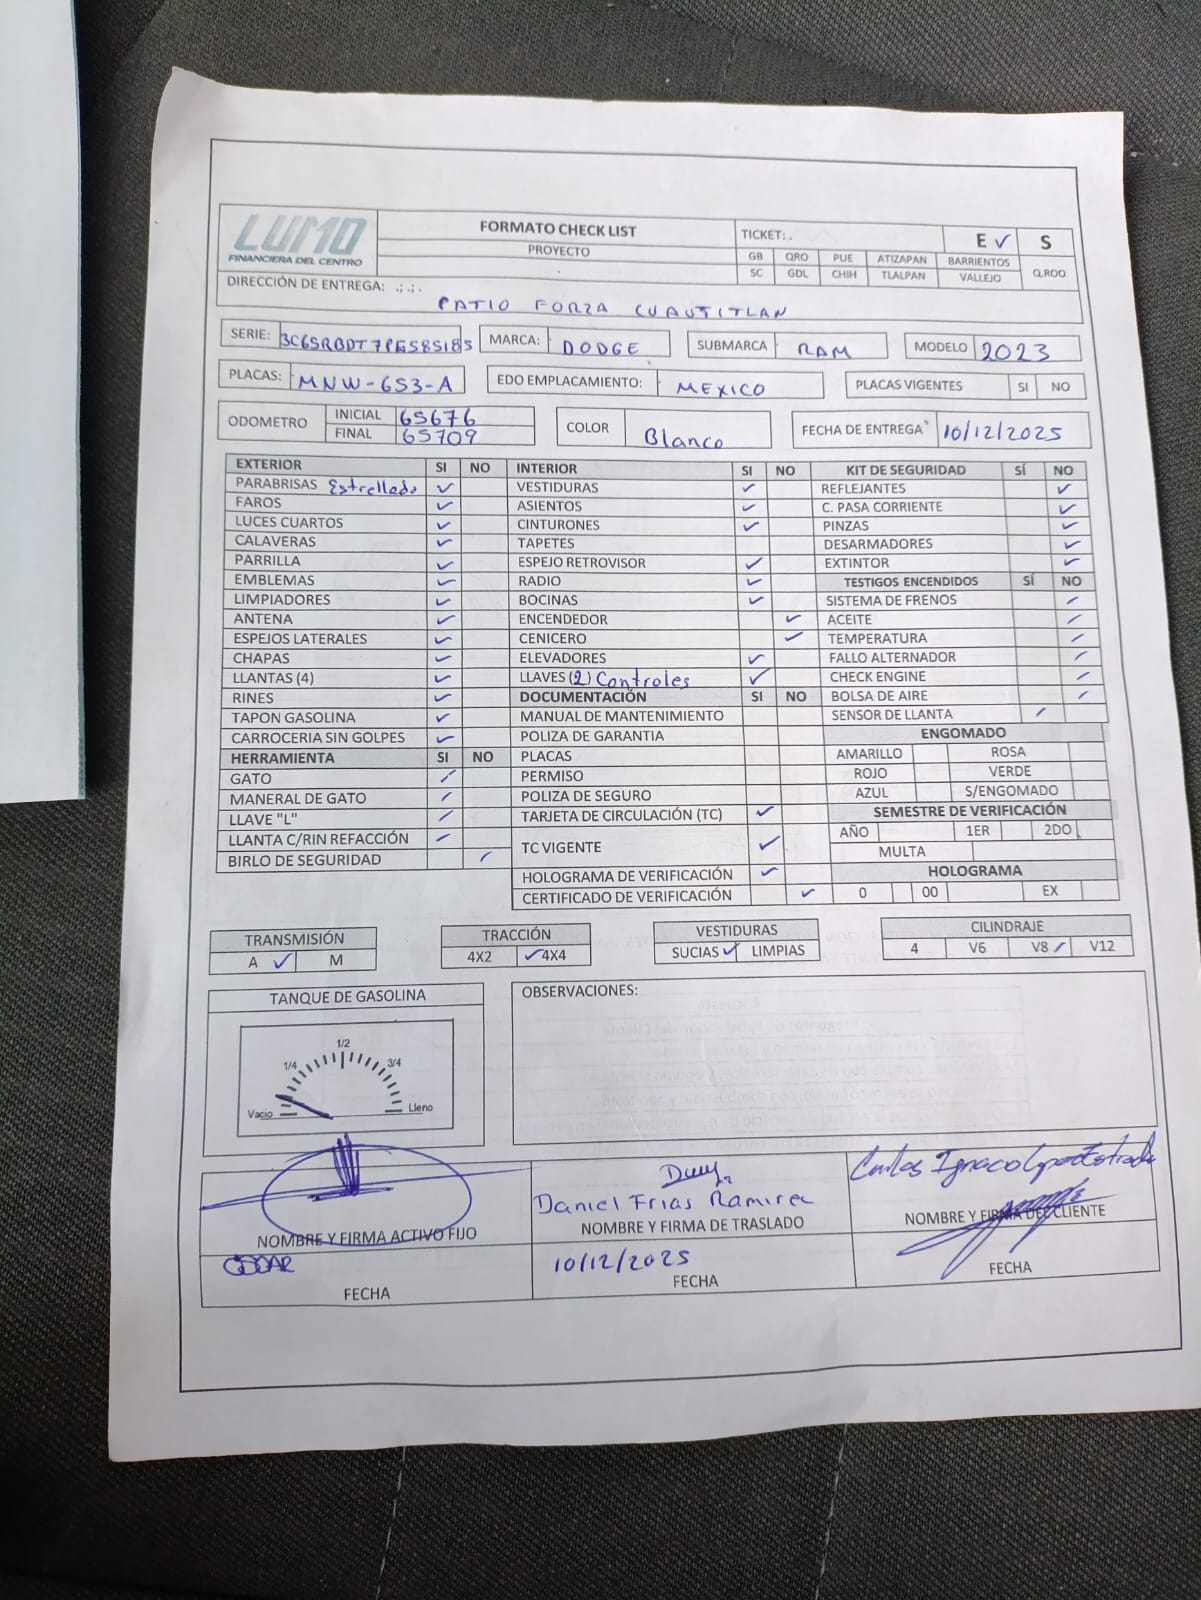 LUMO
FINANCIERA DEL CENTRO
FORMATO CHECK LIST
PROYECTO
TICKET: .
E ✓ S
GB QRO PUE ATIZAPAN BARRIENTOS
SC GDL CHIH TLALPAN VALLEJO Q.ROO
DIRECCIÓN DE ENTREGA: .;.;.
PATIO FORZA CUAUTITLAN
SERIE: MARCA: DODGE SUBMARCA RAM MODELO 2023
PLACAS: MNW-653-A EDO EMPLACAMIENTO: MEXICO PLACAS VIGENTES SI NO
ODOMETRO INICIAL 65676 COLOR Blanco FECHA DE ENTREGA 10/12/2025
FINAL 65709
EXTERIOR SI NO INTERIOR SI NO KIT DE SEGURIDAD SÍ NO
PARABRISAS Estrellado ✓ VESTIDURAS ✓ REFLEJANTES ✓
FAROS ✓ ASIENTOS ✓ C. PASA CORRIENTE ✓
LUCES CUARTOS ✓ CINTURONES ✓ PINZAS ✓
CALAVERAS ✓ TAPETES DESARMADORES ✓
PARRILLA ✓ ESPEJO RETROVISOR ✓ EXTINTOR ✓
EMBLEMAS ✓ RADIO ✓ TESTIGOS ENCENDIDOS SÍ NO
LIMPIADORES ✓ BOCINAS ✓ SISTEMA DE FRENOS ✓
ANTENA ✓ ENCENDEDOR ✓ ACEITE ✓
ESPEJOS LATERALES ✓ CENICERO ✓ TEMPERATURA ✓
CHAPAS ✓ ELEVADORES ✓ FALLO ALTERNADOR ✓
LLANTAS (4) ✓ LLAVES (2) Controles ✓ CHECK ENGINE ✓
RINES ✓ DOCUMENTACIÓN SI NO BOLSA DE AIRE ✓
TAPON GASOLINA ✓ MANUAL DE MANTENIMIENTO SENSOR DE LLANTA ✓
CARROCERIA SIN GOLPES ✓ POLIZA DE GARANTIA ENGOMADO
HERRAMIENTA SI NO PLACAS AMARILLO ROSA
GATO ✓ PERMISO ROJO VERDE
MANERAL DE GATO ✓ POLIZA DE SEGURO AZUL S/ENGOMADO
LLAVE "L" ✓ TARJETA DE CIRCULACIÓN (TC) ✓ SEMESTRE DE VERIFICACIÓN
LLANTA C/RIN REFACCIÓN ✓ TC VIGENTE ✓ AÑO 1ER 2DO
BIRLO DE SEGURIDAD ✓ MULTA
HOLOGRAMA DE VERIFICACIÓN ✓ HOLOGRAMA
CERTIFICADO DE VERIFICACIÓN ✓ 0 00 EX
TRANSMISIÓN TRACCIÓN VESTIDURAS CILINDRAJE
A ✓ M 4X2 ✓ 4X4 SUCIAS ✓ LIMPIAS 4 V6 V8 ✓ V12
TANQUE DE GASOLINA OBSERVACIONES:
1/2
1/4 3/4
Vacio Lleno
Daniel Frias Ramirez
NOMBRE Y FIRMA ACTIVO FIJO NOMBRE Y FIRMA DE TRASLADO NOMBRE Y FIRMA DEL CLIENTE
Carlos Ignacio Lopez Estrada
10/12/2025
FECHA FECHA FECHA